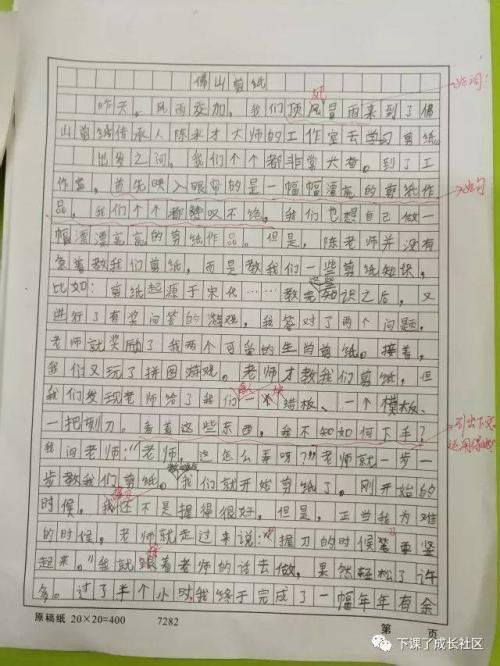 佛山剪纸
昨天,风雨交加,我们顶风冒雨来到了佛
山剪纸传承人陈永才大师的工作室去学习剪纸。
出发之问,我们个个都非常大奋。到了工
作室,首先映入眼帘的是一幅幅漂亮的剪纸作
品,我们个个都赞叹不绝,我们也想自己做一
幅漂漂亮亮的剪纸作品。但是,陈老师并没有
急着教我们剪纸,而是教我们一些剪纸知识,
比如:剪纸起源于宋代……教完知识之后,又
进行了有奖问答的游戏,我答对了两个问题,
老师就奖励了我两个可爱的生肖剪纸。接着,
我们又玩了拼图游戏。老师才教我们剪纸,但
我们发现老师给了我们一个蜡板、一个模板、
一把刻刀。看着这些东西,我不知如何下手?
我问老师:“老师,这怎么弄呀?”老师就一步一
步教我们剪纸。我们就开始剪纸了。刚开始的
时候,我还不是握得很好,但是,正当我为难
的时候,老师就走过来说:“握刀的时候要垂竖
起来。”我就跟着老师的话去做,果然轻松了许
多。过了半个小时,我终于完成了一幅年年有余
原稿纸 20×20=400 7282 第 页
下课了成长社区